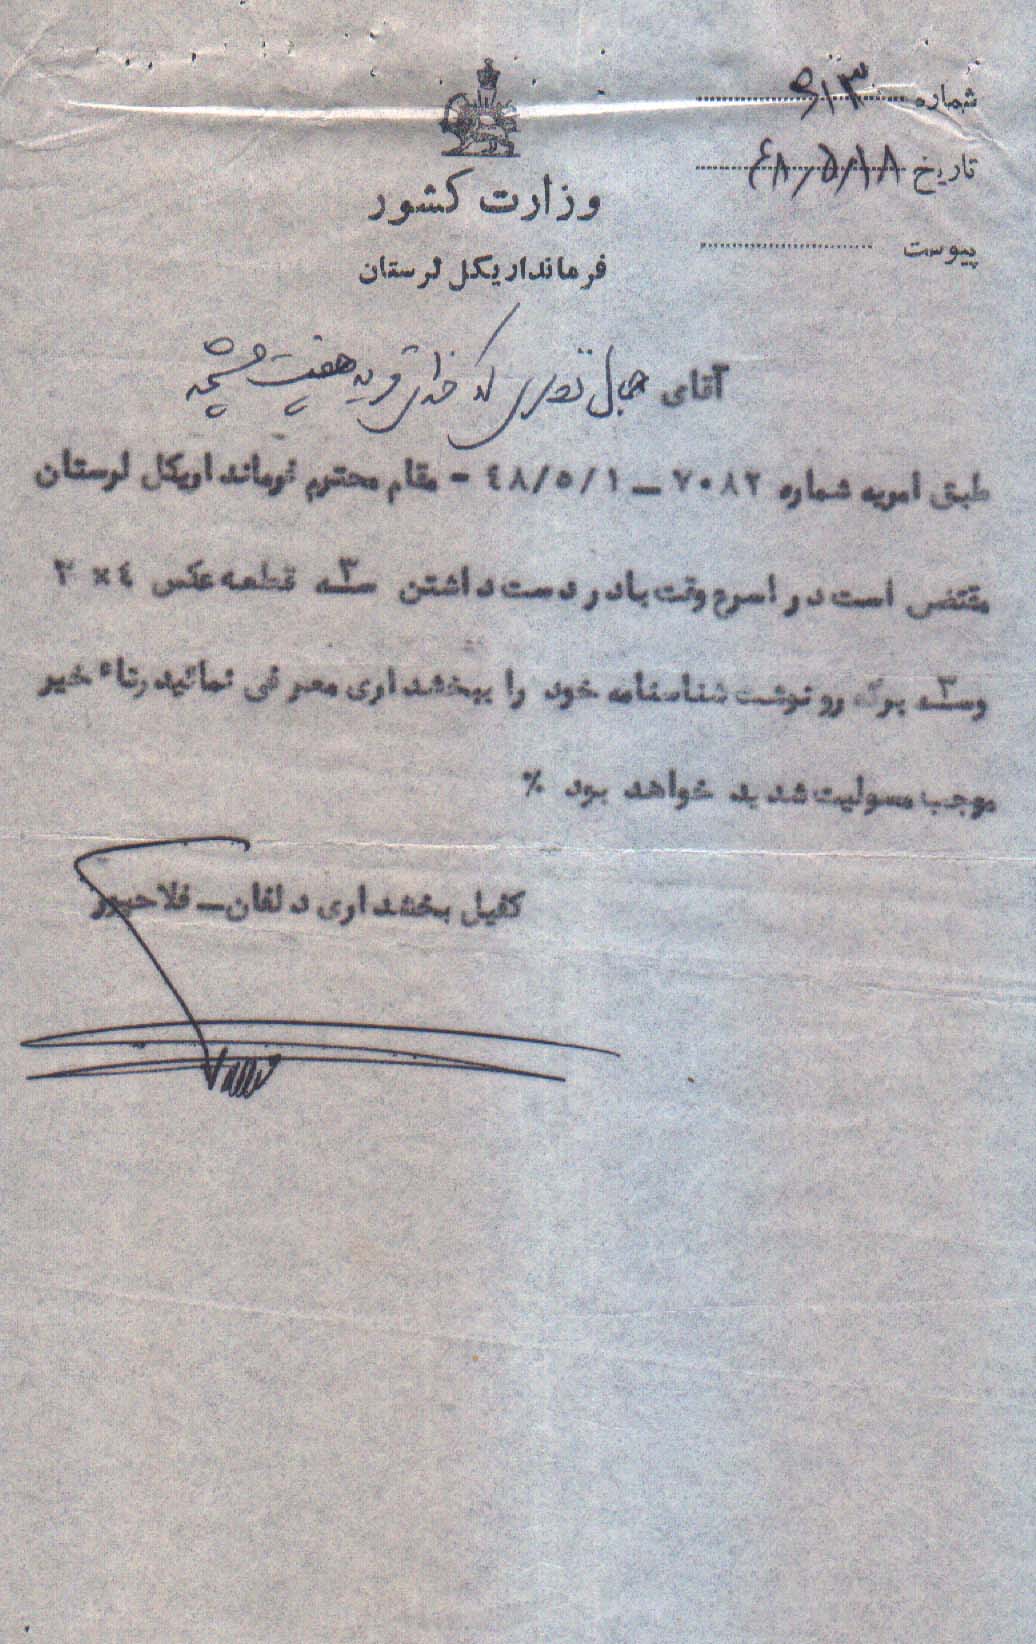 شماره ۵۱۳
تاریخ ۴۸/۵/۱۸
پیوست
وزارت کشور
فرمانداریکل لرستان
آقای جمال کدخدای قریه هفت چشمه
طبق امریه شماره ۷۰۸۲ – ۴۸/۵/۱ - مقام محترم فرمانداریکل لرستان
مقتضی است در اسرع وقت با در دست داشتن سه ۳ قطعه عکس ۴ × ۳
وسه ۳ برگ رونوشت شناسنامه خود را ببخشداری معرفی نمائید تاء خیر
موجب مسولیت شدید خواهد بود ٪
کفیل بخشداری دلفان – فلاحپور